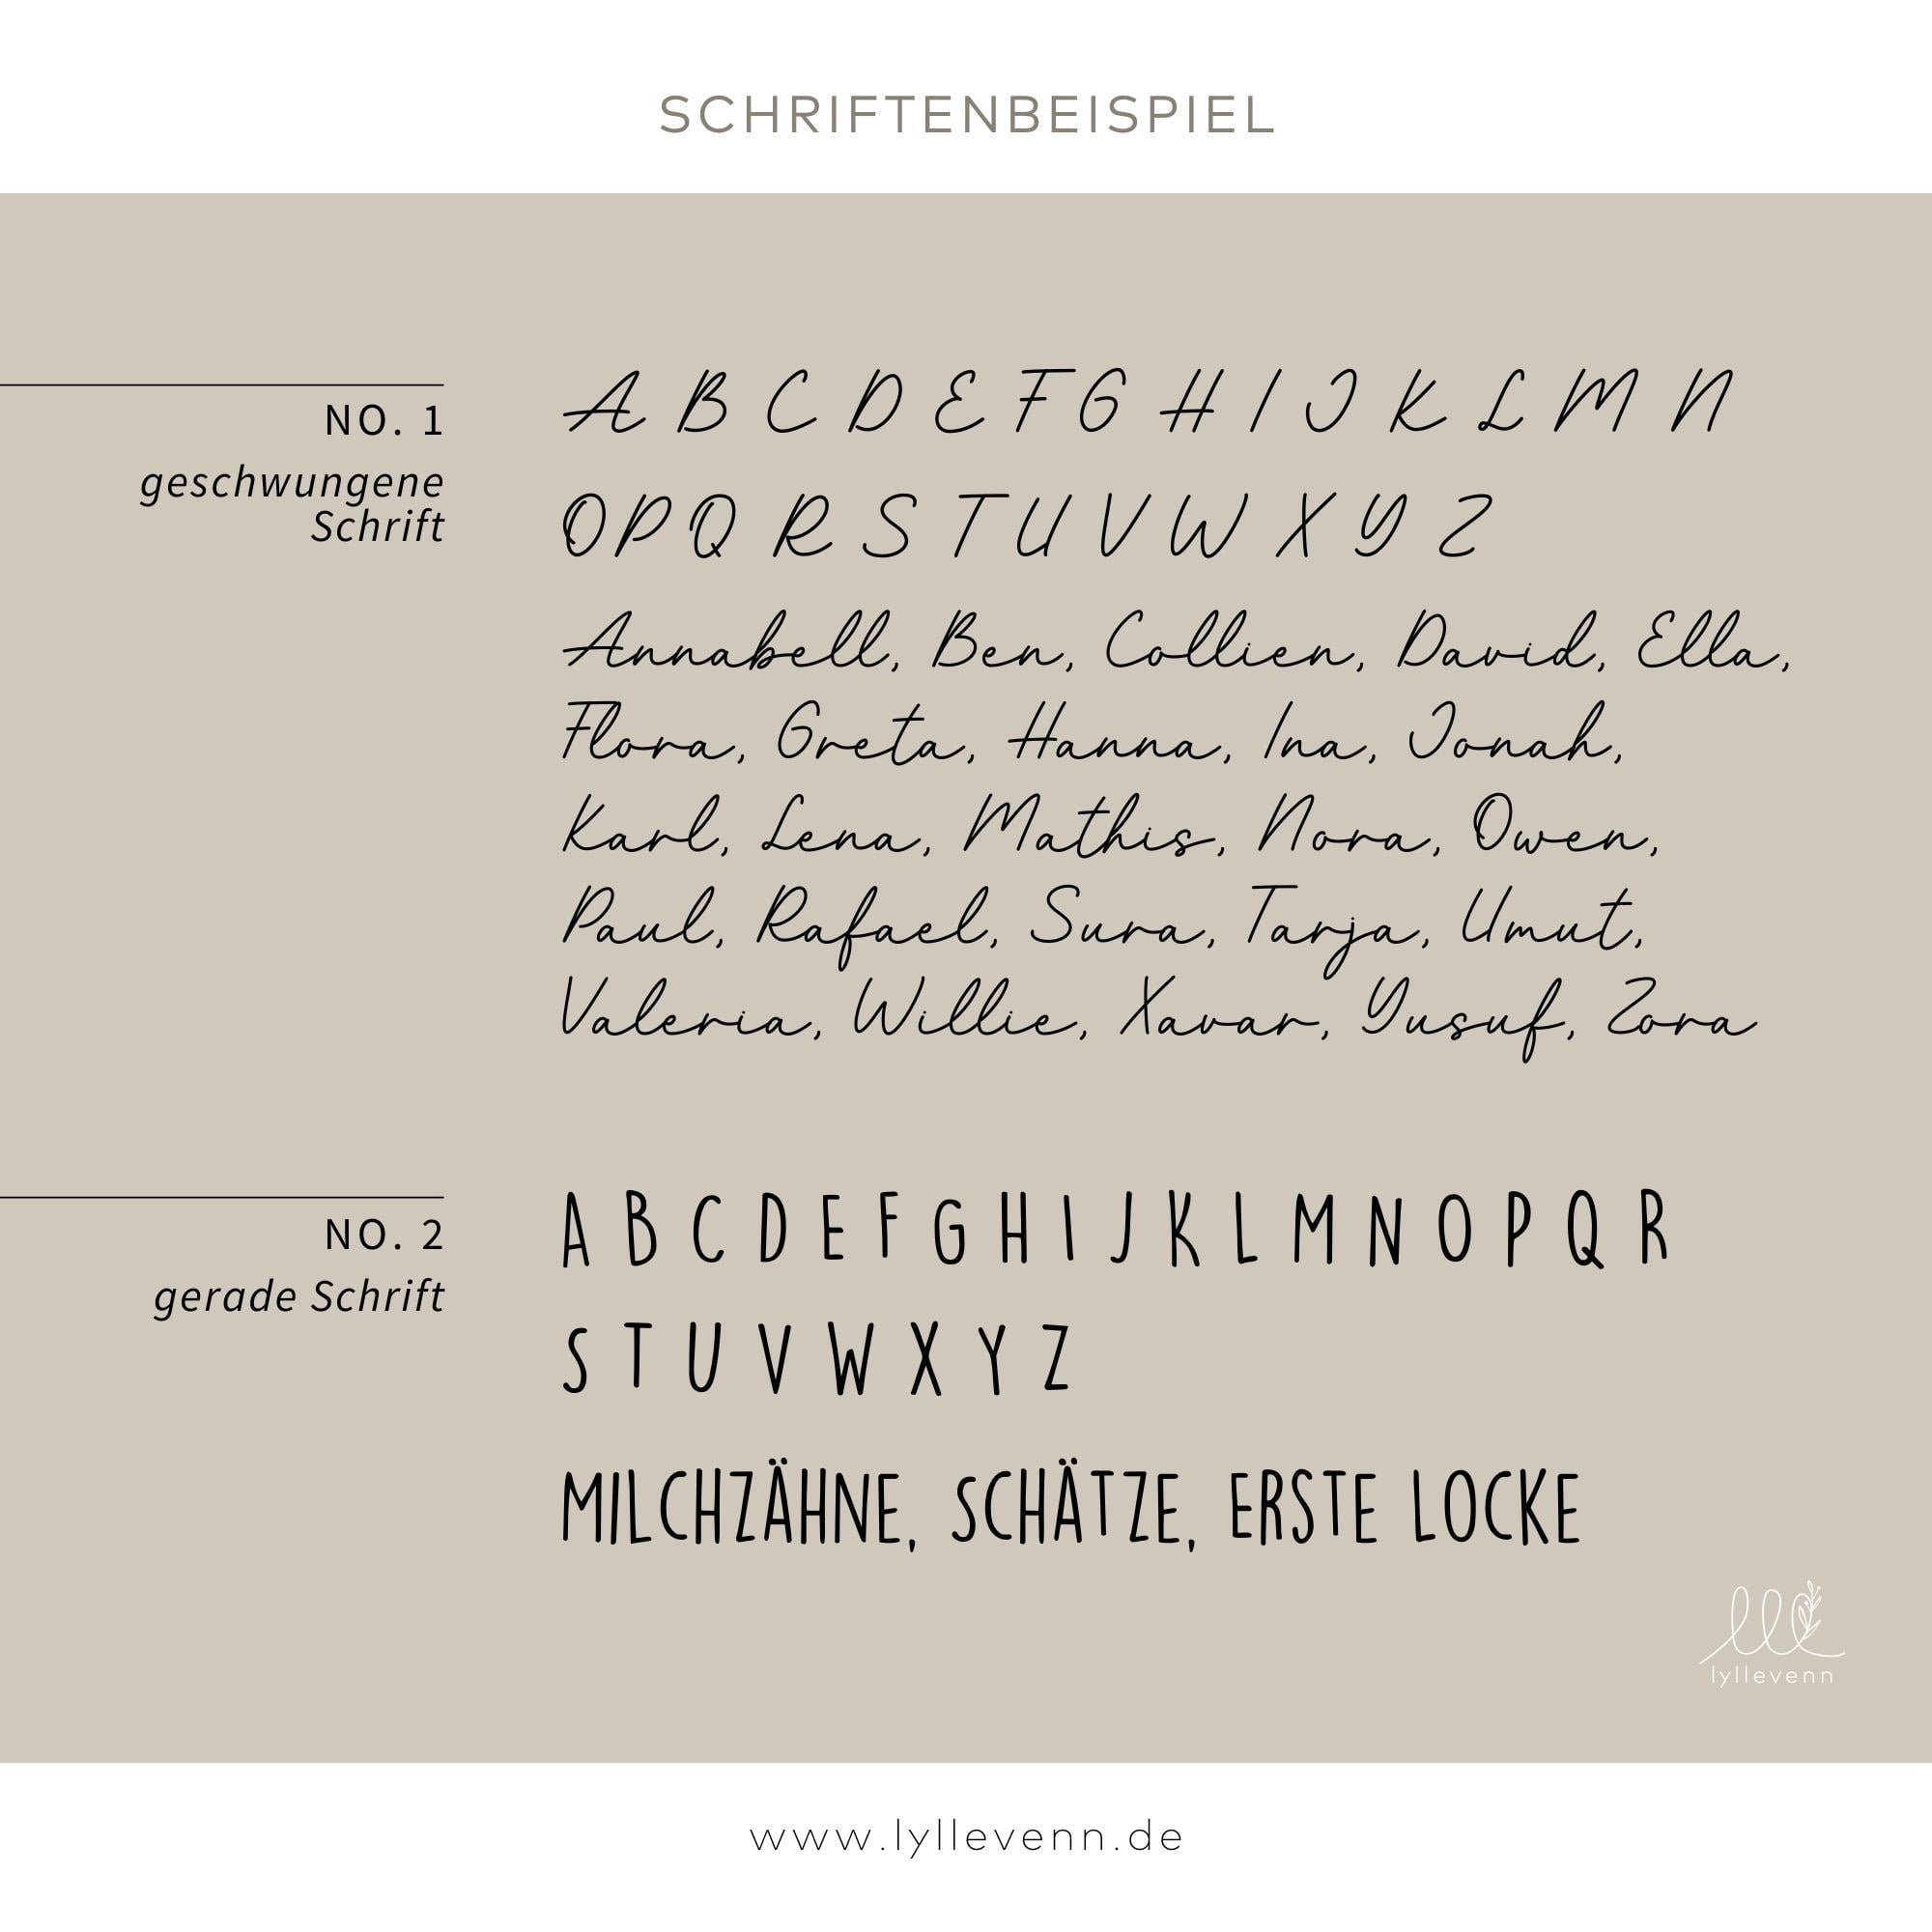 SCHRIFTENBEISPIEL
NO. 1
geschwungene
Schrift
A B C D E F G H I J K L M N
O P Q R S T U V W X Y Z
Annabell, Ben, Collien, David, Ella,
Flora, Greta, Hanna, Ina, Jonah,
Karl, Lena, Mathis, Nora, Owen,
Paul, Rafael, Sura, Tarja, Umut,
Valeria, Willie, Xavar, Yusuf, Zora
NO. 2
gerade Schrift
A B C D E F G H I J K L M N O P Q R
S T U V W X Y Z
MILCHZÄHNE, SCHÄTZE, ERSTE LOCKE
lyllevenn
www.lyllevenn.de